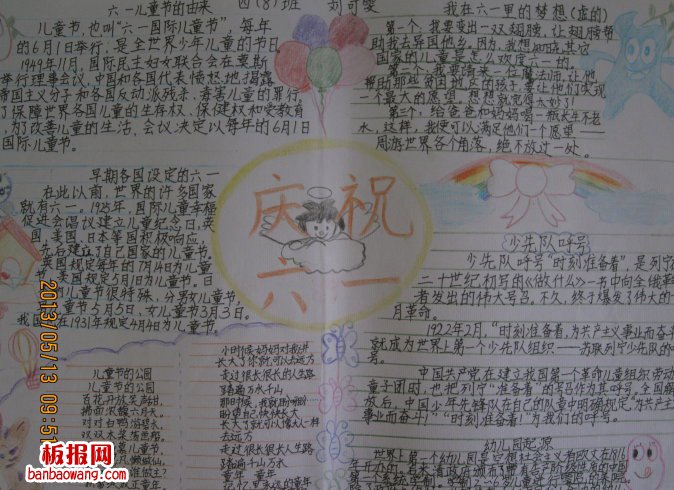 六一儿童节的由来 四(8)班 刘可雯
儿童节,也叫"六一国际儿童节",每年
的6月1日举行,是全世界少年儿童的节日。
1949年11月,国际民主妇女联合会在莫斯
举行理事会议,中国和各国代表愤怒地揭露
帝国主义分子和各国反动派残杀、毒害儿童的罪行。
了保障世界各国儿童的生存权、保健权和受教育
为了改善儿童的生活,会议决定以每年的6月1日
国际儿童节。
早期各国设定的六一
在此以前,世界的许多国家
就有六一。1925年,国际儿童幸福
促进会倡议建立儿童纪念日,英
国、美国、日本等国积极响应
先后建立了自己国家的儿童节。
英国规定每年的7月14日为儿童
节,美国规定5月1日为儿童节。日
儿童节很特殊,分男女儿童节,
童节5月5日,女儿童节3月3日。
我国在1931年规定4月4日为儿童节。
儿童节的公园
儿童节的公园
百花开放笑甜甜
小时候妈妈对我讲
长大了你可以去远方
走过很长很长的人生路
踏遍千山万水
那时候
长大了就可以像大人一样
去远方
走过很长很长人生路
踏遍千山万水
庆祝
六一
我在六一里的梦想(虚的)
第一个,我要变出一双翅膀,让翅膀帮
助我去异国他乡。因为,我想知道在其它
国家的儿童是怎么欢度六一的。
帮助那些贫困地区的孩子,要让他们实现
一个最大的愿望。想想就觉得太好了!
第三个,给爸爸和妈妈喝一瓶长生不老
水,这样,我便可以满足他们一个愿望——
周游世界各个角落,绝不放过一处。
少先队呼号
少先队呼号"时刻准备着",是列宁
二十世纪初写的《做什么》一书中向全俄革
者发出的伟大号召。不久,终于爆发了伟大的十
月革命。
1922年2月,"时刻准备着,为共产主义事业而奋斗
就成为世界上第一个少先队组织——苏联列宁少先队的呼
号。
中国共产党在建立我国第一个革命儿童组织劳动
童子团时,也把列宁"准备着"的号召作为其呼号。全国解
放后,中国少年先锋队在自己的队章中明确规定,为共产主
事业而奋斗!""时刻准备着!"为我们的呼号。
幼儿园起源
2013/05/13 09:51
板报网
banbaowang.com